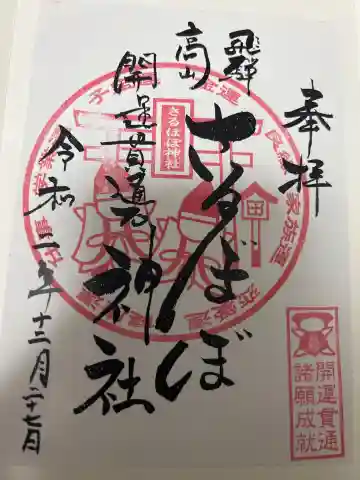 奉拝
飛騨
高山
さるぼぼ
開運貫通神社
令和二年十二月二十七日
さるぼぼ神社
開運貫通
諸願成就